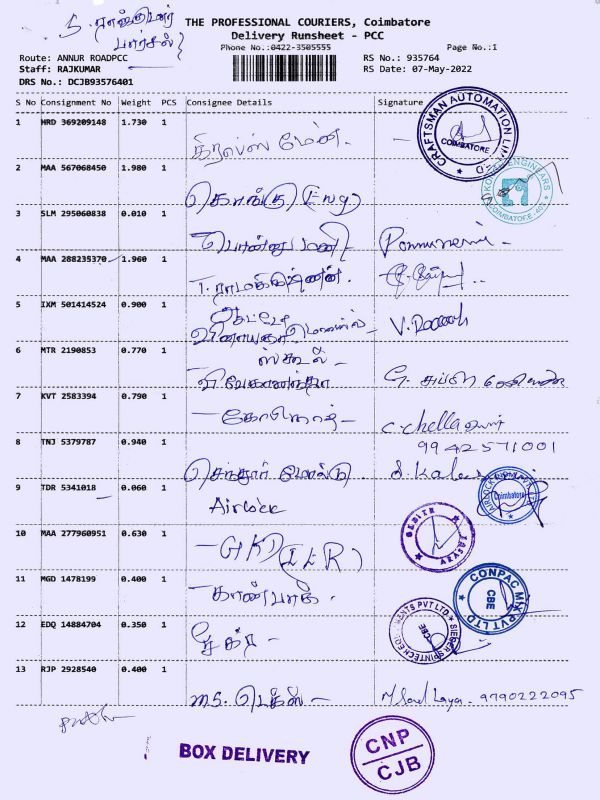 S. ராஜ்குமார்
பார்சல்
THE PROFESSIONAL COURIERS, Coimbatore
Delivery Runsheet - PCC
Phone No.:0422-3505555
Page No.:1
Route: ANNUR ROADPCC
RS No.: 935764
Staff: RAJKUMAR
RS Date: 07-May-2022
DRS No.: DCJB93576401
S No Consignment No Weight PCS Consignee Details Signature
1 HRD 369209148 1.730 1
CRAFTSMAN AUTOMATION LIMITED
COIMBATORE
2 MAA 567068450 1.980 1
கொங்கு Eng
COIMBATORE
3 SLM 295060838 0.010 1
பொன்னுமணி
4 MAA 288235370 1.960 1
T. ராமகிருஷ்ணன்.
5 IXM 501414524 0.900 1
விநாயகா
6 MTR 2190853 0.770 1
ஸ்கூல்
விவேகானந்தா
7 KVT 2583394 0.790 1
C. Chella
9942571001
8 TNJ 5379787 0.940 1
9 TDR 5341018 0.060 1
Airlock
Coimbatore
10 MAA 277960951 0.630 1
GKD
11 MGD 1478199 0.400 1
காண்பாக்
CONPAC PVT LTD
CBE
12 EDQ 14884704 0.350 1
CBE
13 RJP 2928540 0.400 1
MS. டெக்ஸ்
9790222095
BOX DELIVERY
CNP
CJB